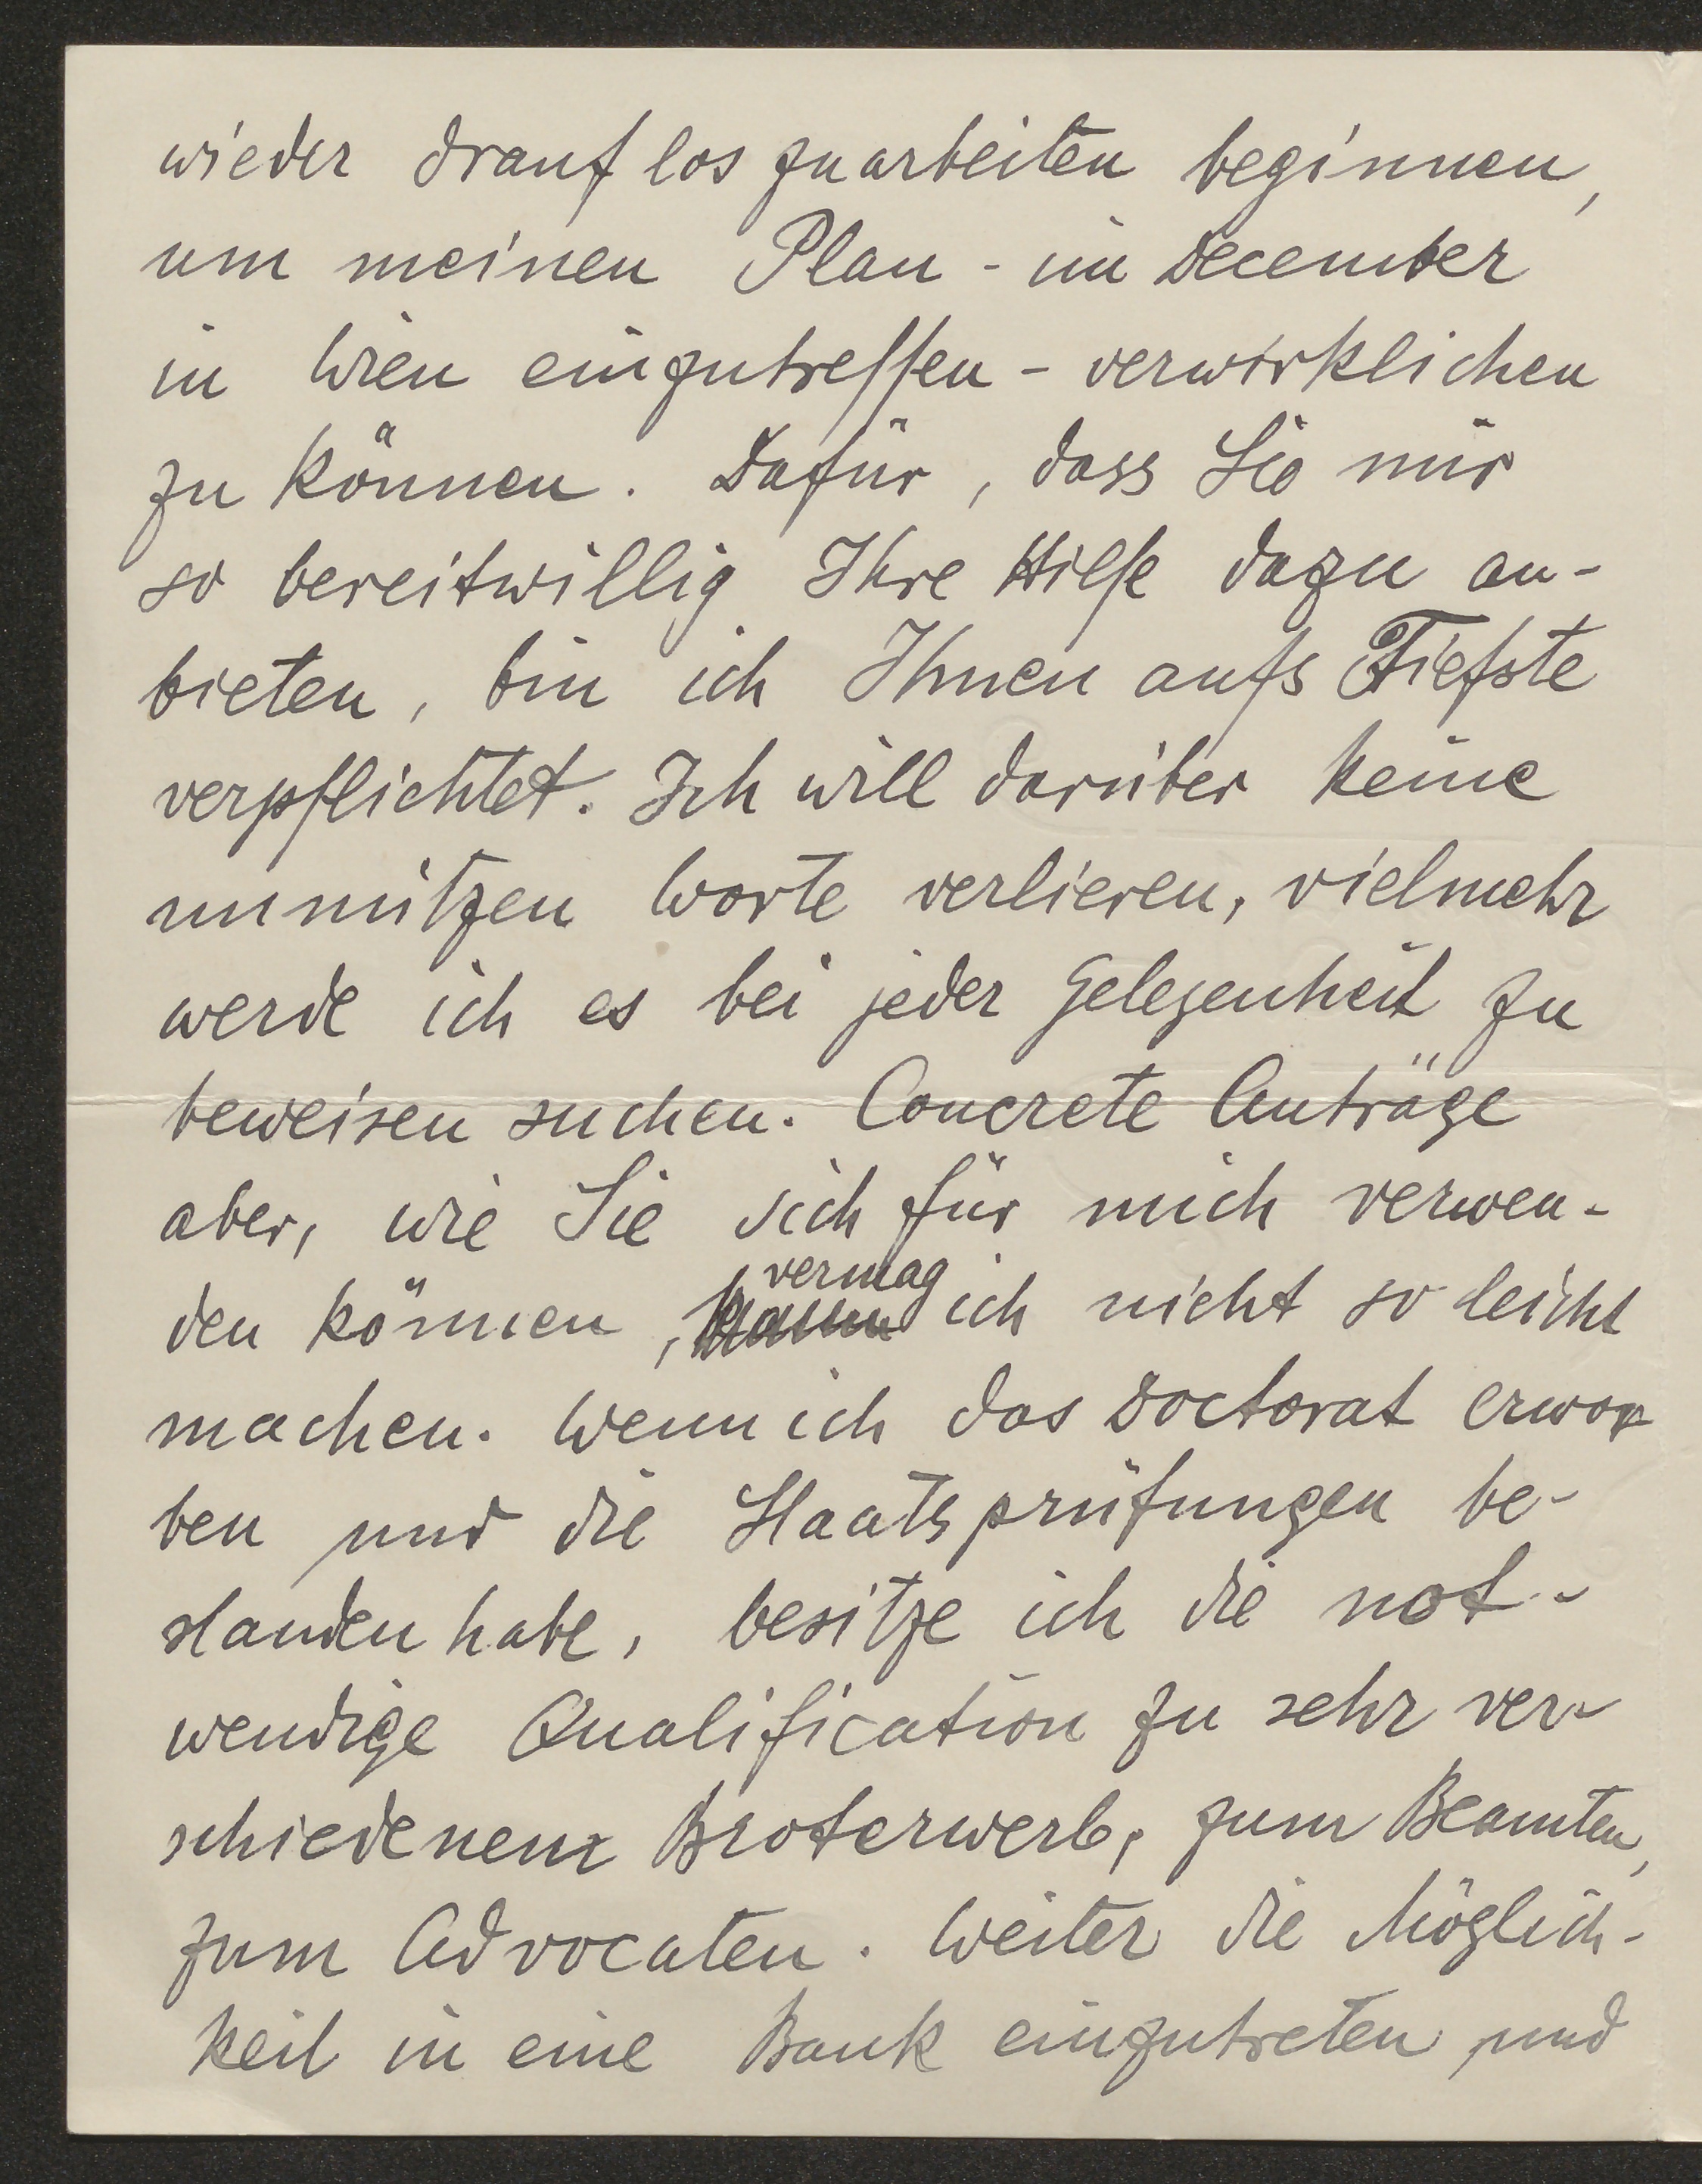 wieder drauf los zuarbeiten beginnen,
um meinen Plan - im December
in Wien einzutreffen - verwirklichen
zu können. Dafür, dass Sie mir
so bereitwillig Ihre Hilfe dazu an-
bieten, bin ich Ihnen aufs Tiefste
verpflichtet. Ich will darüber keine
unnützen Worte verlieren, vielmehr
werde ich es bei jeder Gelegenheit zu
beweisen suchen. Concrete Anträge
aber, wie Sie sich für mich verwen-
vermag
den können, kann ich nicht so leicht
machen. Wenn ich das Doctorat erwor
ben und die Staatsprüfungen be-
standen habe, besitze ich die not-
wendige Qualification zu sehr ver-
schiedenem Broterwerb, zum Beamten,
zum Advocaten. Weiter die Möglich-
keit in eine Bank einzutreten und